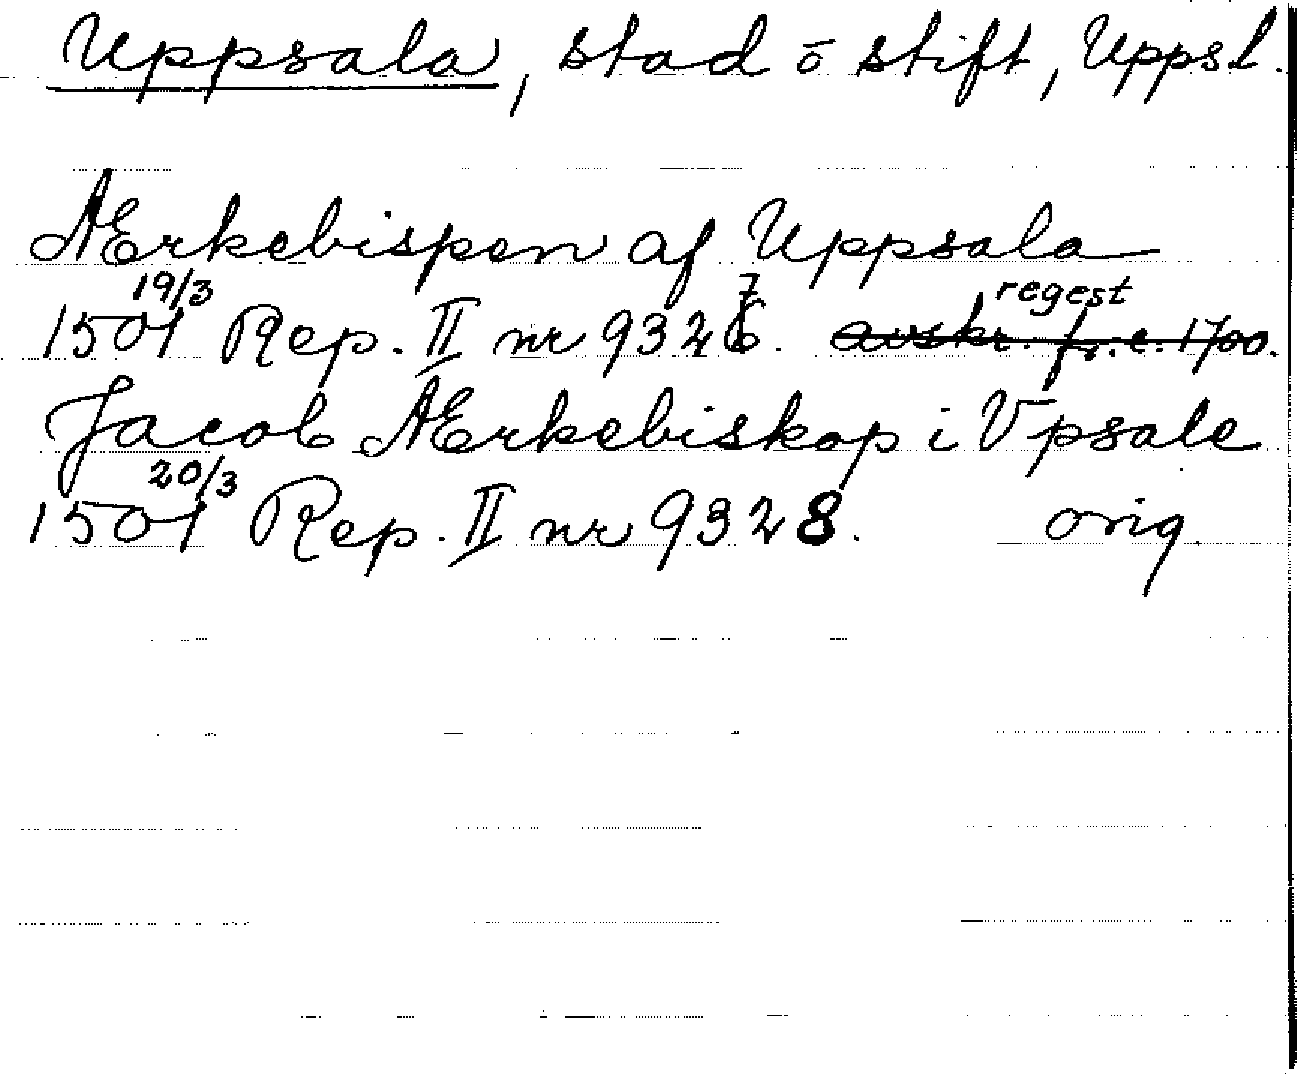 Uppsala, stad o stift, Uppsl.
AErkebispen af Uppsala
19/3 7 regest
1501 Rep. II nr 9326. avskr. fr. c. 1700.
Jacob AErkebiskop i Vpsale
20/3
1501 Rep. II nr 9328. orig.